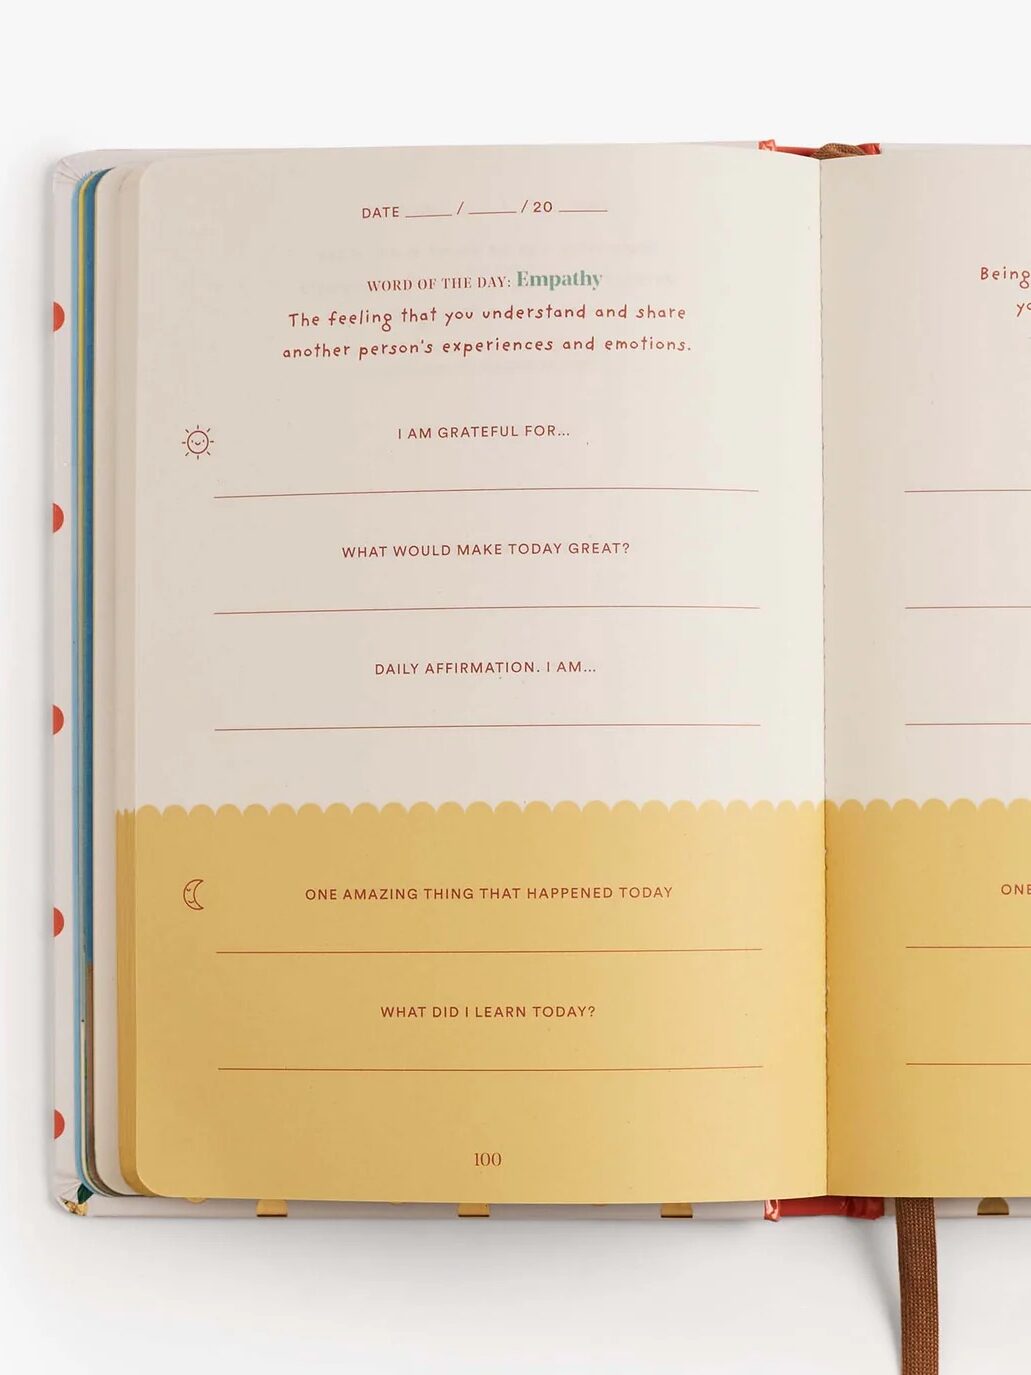 DATE ____ / ____ / 20 ____
WORD OF THE DAY: Empathy
The feeling that you understand and share
another person's experiences and emotions.
I AM GRATEFUL FOR...
WHAT WOULD MAKE TODAY GREAT?
DAILY AFFIRMATION. I AM...
ONE AMAZING THING THAT HAPPENED TODAY
WHAT DID I LEARN TODAY?
100
Being
ONE